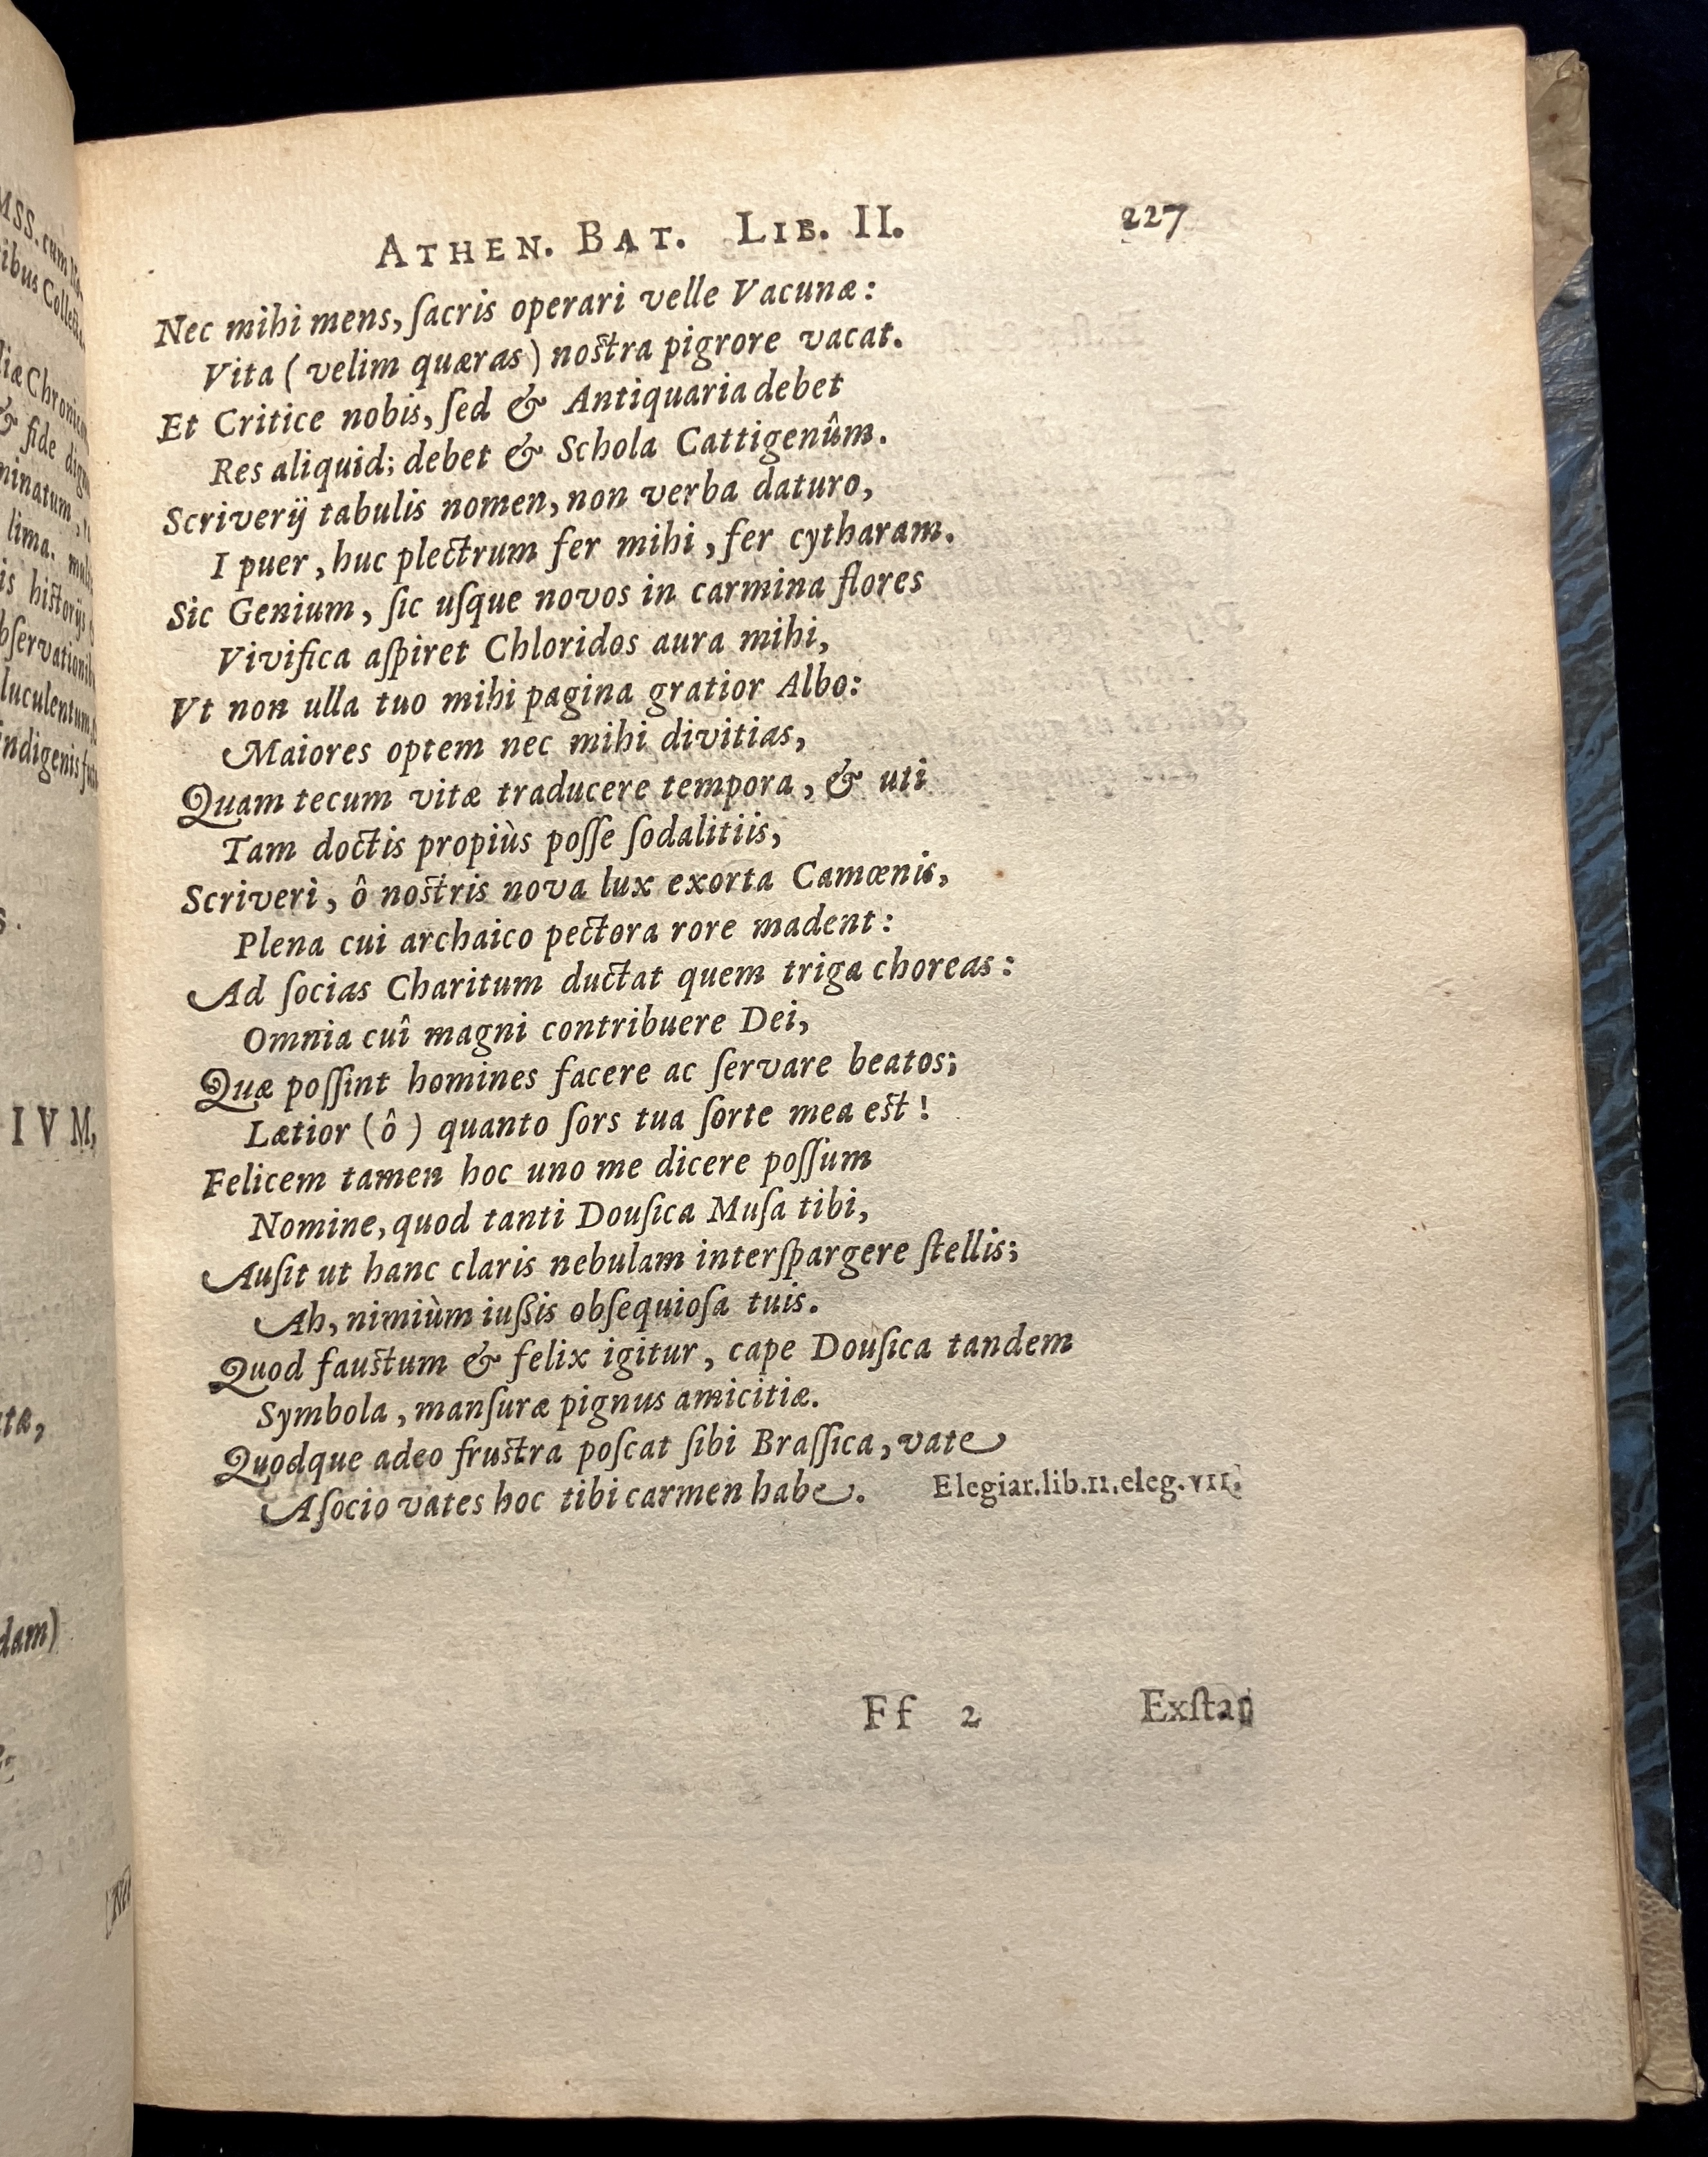 ATHEN. BAT. LIB. II. 227
Nec mihi mens, ſacris operari velle Vacunæ:
Vita ( velim quæras ) noſtra pigrore vacat.
Et Critice nobis, ſed & Antiquaria debet
Res aliquid; debet & Schola Cattigenûm.
Scriverij tabulis nomen, non verba daturo,
I puer, huc plectrum fer mihi, fer cytharam.
Sic Genium, ſic uſque novos in carmina flores
Vivifica aſpiret Chloridos aura mihi,
Vt non ulla tuo mihi pagina gratior Albo:
Maiores optem nec mihi divitias,
Quam tecum vitæ traducere tempora, & uti
Tam doctis propiùs poſſe ſodalitiis,
Scriveri, ô noſtris nova lux exorta Camœnis,
Plena cui archaico pectora rore madent:
Ad ſocias Charitum ductat quem triga choreas:
Omnia cuî magni contribuere Dei,
Quæ poſſint homines facere ac ſervare beatos;
Lætior ( ô ) quanto ſors tua ſorte mea eſt!
Felicem tamen hoc uno me dicere poſſum
Nomine, quod tanti Douſica Muſa tibi,
Auſit ut hanc claris nebulam interſpargere ſtellis;
Ah, nimiùm iuſsis obſequioſa tuis.
Quod fauſtum & felix igitur, cape Douſica tandem
Symbola, manſuræ pignus amicitiæ.
Quodque adeo fruſtra poſcat ſibi Braſſica, vate
A ſocio vates hoc tibi carmen habe. Elegiar. lib. II. eleg. VII.
Ff 2 Exſtan
MSS. cum
ibus
Chronicon
& fide
lima.
hiſtorijs
luculentum
IVM,
dam)